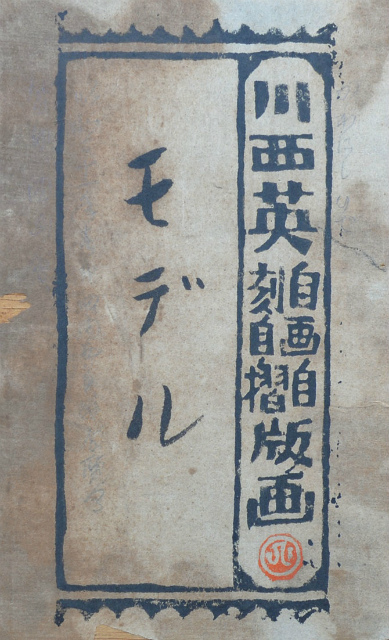 川西英
自画自刻自摺
版画
モデル